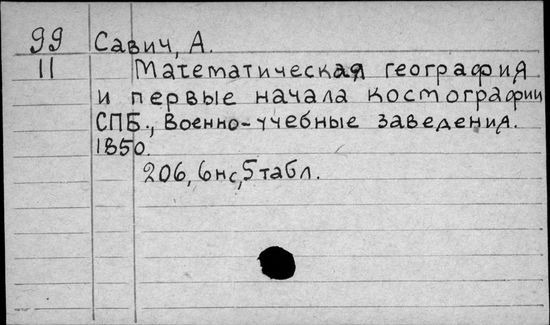 99 Савич, А.
11 Математическая география
и первые начала космографии
СПБ., Военно-учебные заведения.
1850.
206, 6нс, 5 табл.